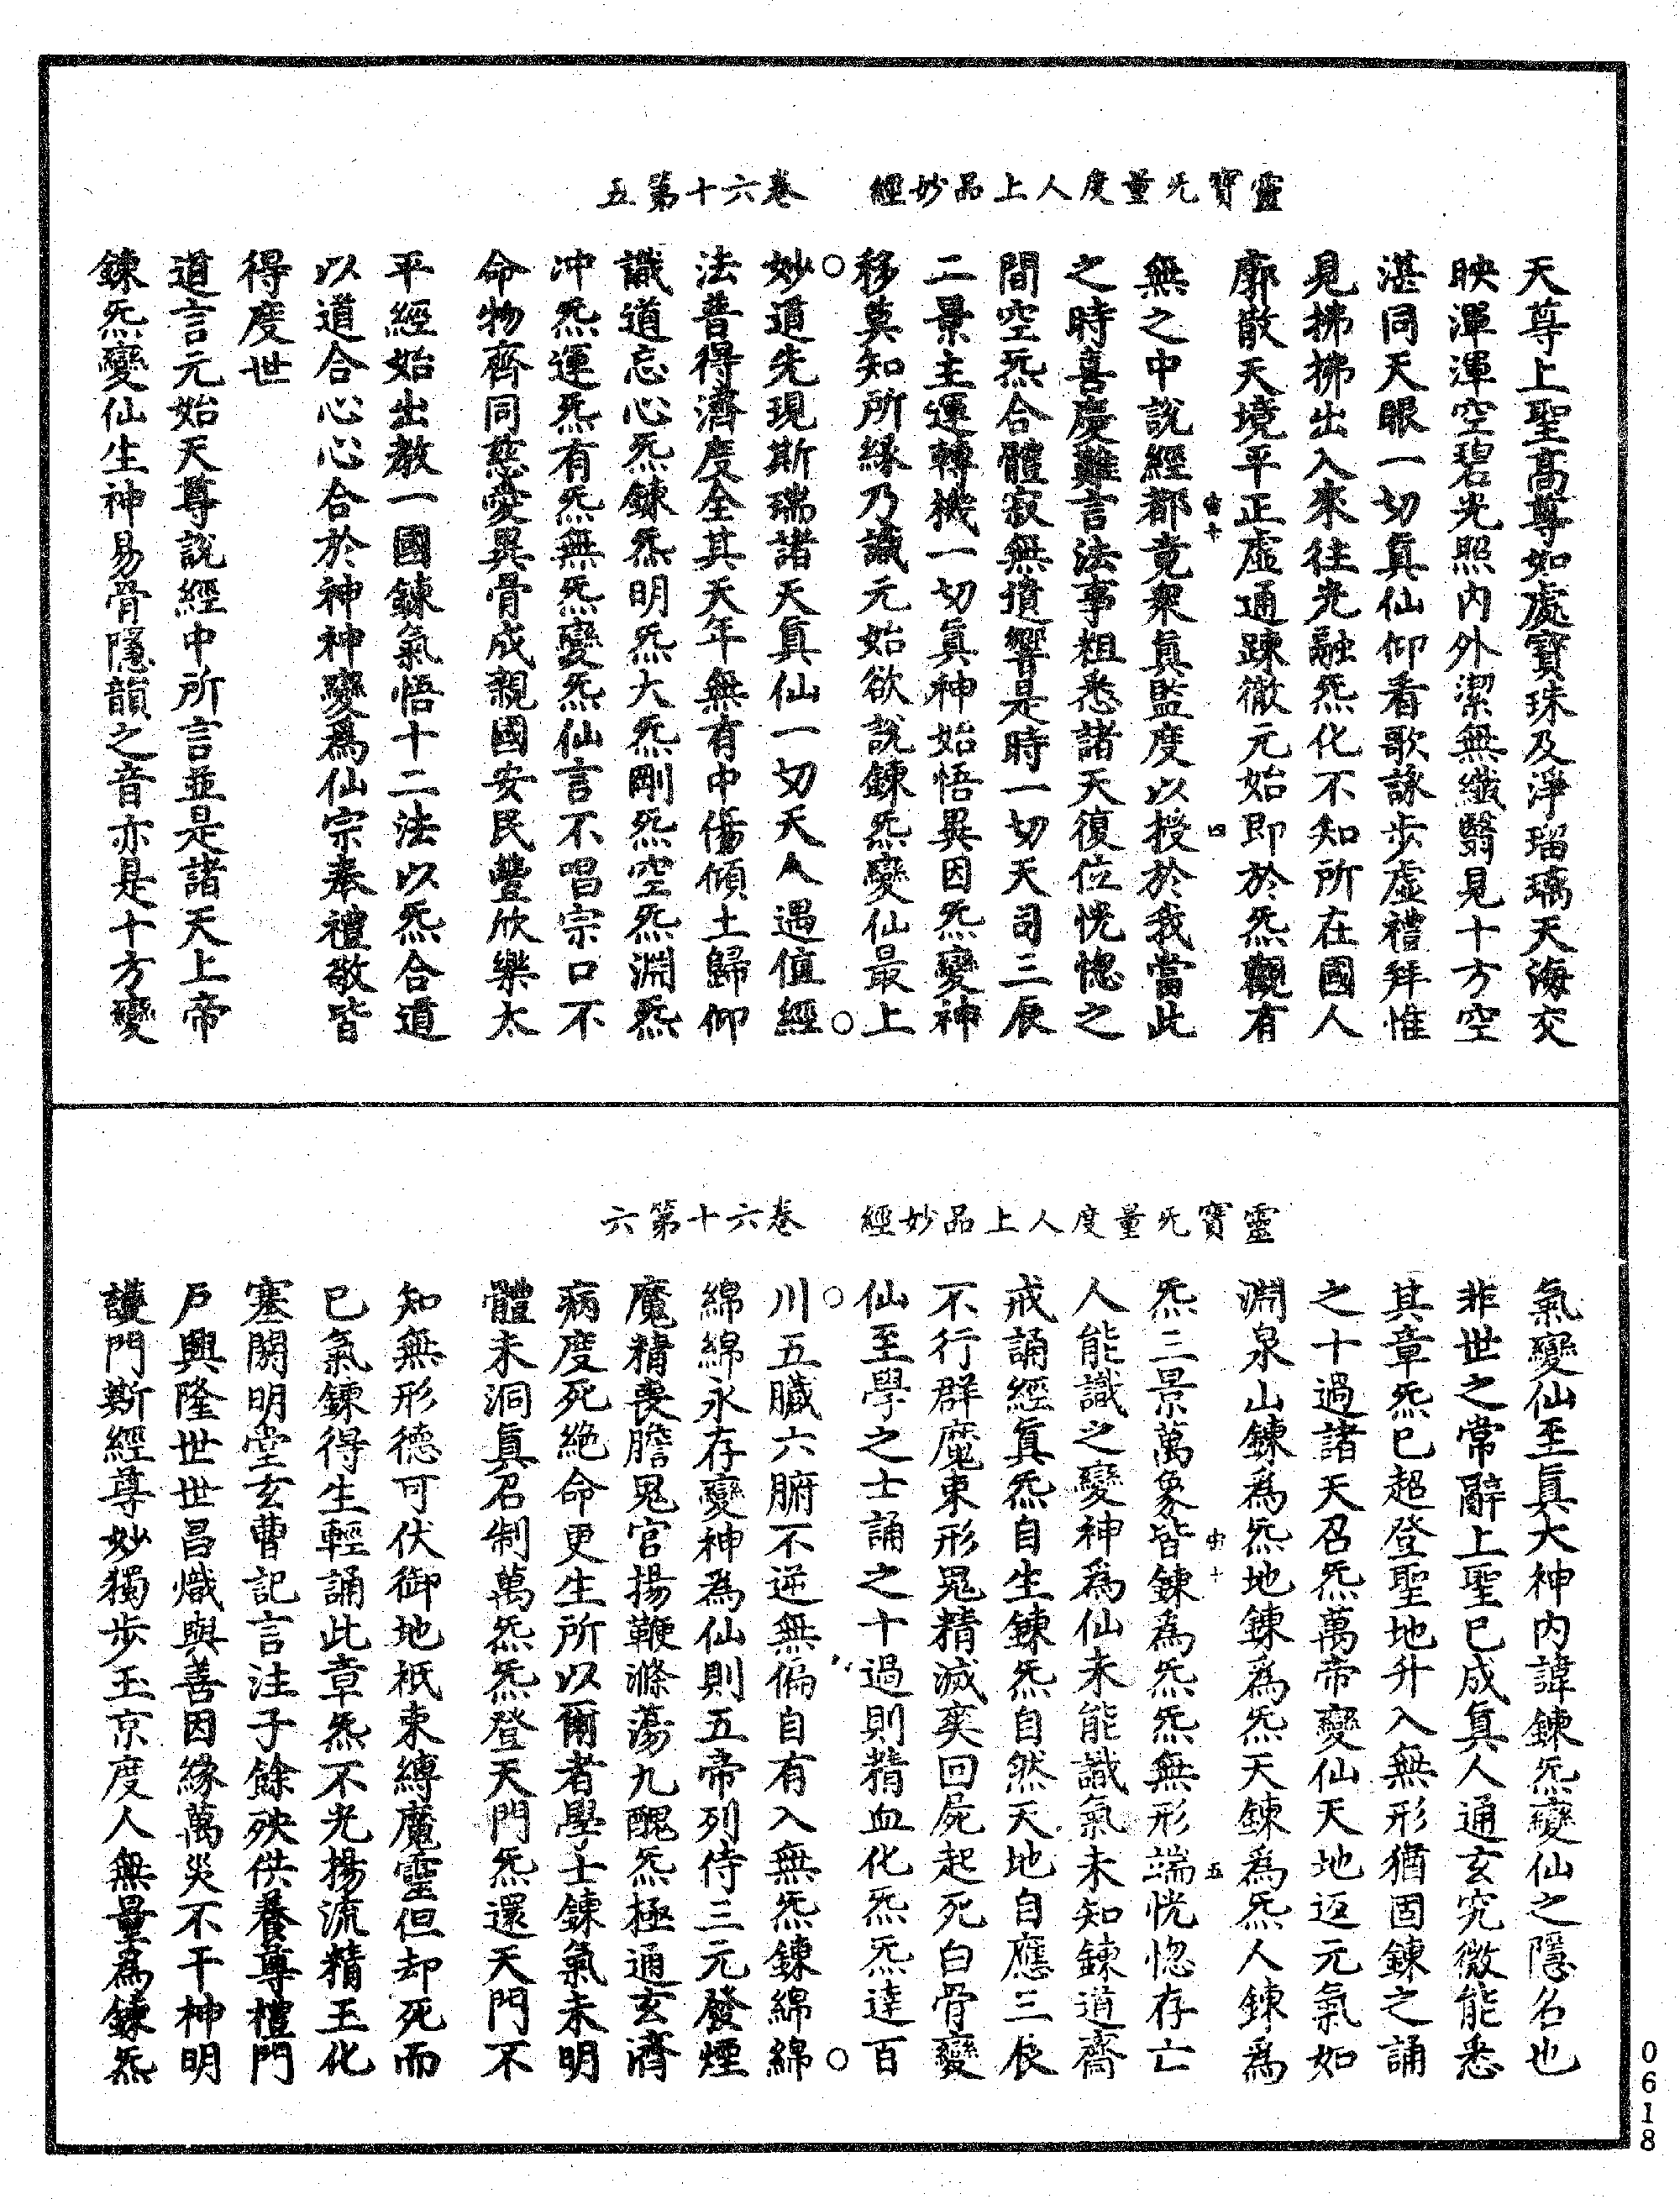 靈寶旡量度人上品妙經　卷六十第五
天尊上聖高尊如處寶珠及淨瑠璃天海交
映渾渾空碧光照內外潔無纖翳見十方空
湛同天眼一切眞仙仰看歌詠步虛禮拜惟
見拂拂出入來往光融炁化不知所在國人
廓散天境平正虛通踈徹元始即於炁觀有
無之中說經都竟衆眞監度以授於我當此
之時喜慶難言法事粗悉諸天復位恍惚之
間空炁合體寂無遺響是時一切天司三辰
二景主運轉機一切眞神始悟異因炁變神
移莫知所縁乃識元始欲說鍊炁變仙最上
妙道先現斯瑞諸天眞仙一切天人遇值經
法普得濟度全其天年無有中傷傾土歸仰
識道忘心炁鍊炁明炁大炁剛炁空炁淵炁
冲炁運炁有炁無炁變炁仙言不唱宗口不
命物齊同慈愛異骨成親國安民豐欣樂太
平經始出教一國鍊氣悟十二法以炁合道
以道合心心合於神神變爲仙宗奉禮敬皆
得度世
道言元始天尊說經中所言並是諸天上帝
鍊炁變仙生神易骨隱韻之音亦是十方變
靈寶旡量度人上品妙經　卷六十第六
氣變仙至眞大神內諱鍊炁變仙之隱名也
非世之常辭上聖已成眞人通玄究微能悉
其章炁已超登聖地升入無形猶固鍊之誦
之十過諸天召炁萬帝變仙天地返元氣如
淵泉山鍊爲炁地鍊爲炁天鍊爲炁人鍊爲
炁三景萬象皆鍊爲炁炁無形端恍惚存亡
人能識之變神爲仙未能識氣未知鍊道齋
戒誦經眞炁自生鍊炁自然天地自應三辰
不行群魔束形鬼精滅爽回屍起死白骨變
仙至學之士誦之十過則精血化炁炁達百
川五臟六腑不逆無偏自有入無炁鍊綿綿
綿綿永存變神爲仙則五帝列侍三元發煙
魔精喪膽鬼官揚鞭滌蕩九醜炁極通玄濟
病度死絶命更生所以爾者學士鍊氣未明
體未洞眞召制萬炁炁登天門炁還天門不
知無形德可伏御地祇束縛魔靈但却死而
已氣鍊得生輕誦此章炁不光揚流精玉化
塞關明堂玄曹記言注子餘殃供養尊禮門
戶興隆世世昌熾與善因緣萬災不干神明
護門斯經尊妙獨步玉京度人無量爲鍊炁
0618